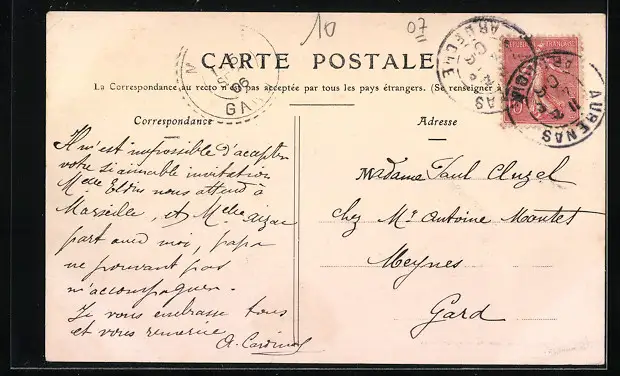 10
07
CARTE POSTALE
La Correspondance au recto n'est pas acceptée par tous les pays étrangers. (Se renseigner à
Correspondance
Adresse
REPUBLIQUE FRANÇAISE
AUBENAS
GV
06
Il m'est impossible d'accepter
votre si aimable invitation
Melle Eldin nous attend à
Marseille, et Melle
part avec moi, papa
ne pouvant pas
m'accompagner.
Je vous embrasse tous
et vous remercie
A. Cardinal
Madame Paul Cluzel
chez Mr Antoine Moutet
Meynes
Gard